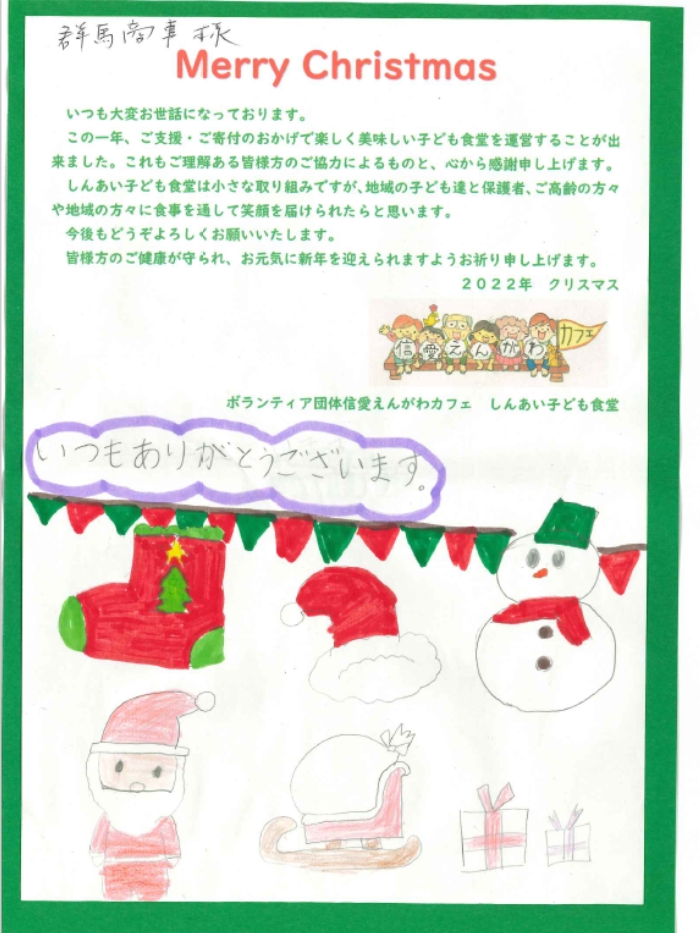 群馬商事 様
Merry Christmas
いつも大変お世話になっております。
この一年、ご支援・ご寄付のおかげで楽しく美味しい子ども食堂を運営することが出
来ました。これもご理解ある皆様方のご協力によるものと、心から感謝申し上げます。
しんあい子ども食堂は小さな取り組みですが、地域の子ども達と保護者、ご高齢の方々
や地域の方々に食事を通して笑顔を届けられたらと思います。
今後もどうぞよろしくお願いいたします。
皆様方のご健康が守られ、お元気に新年を迎えられますようお祈り申し上げます。
２０２２年　クリスマス
信愛えんがわカフェ
ボランティア団体信愛えんがわカフェ　しんあい子ども食堂
いつもありがとうございます。